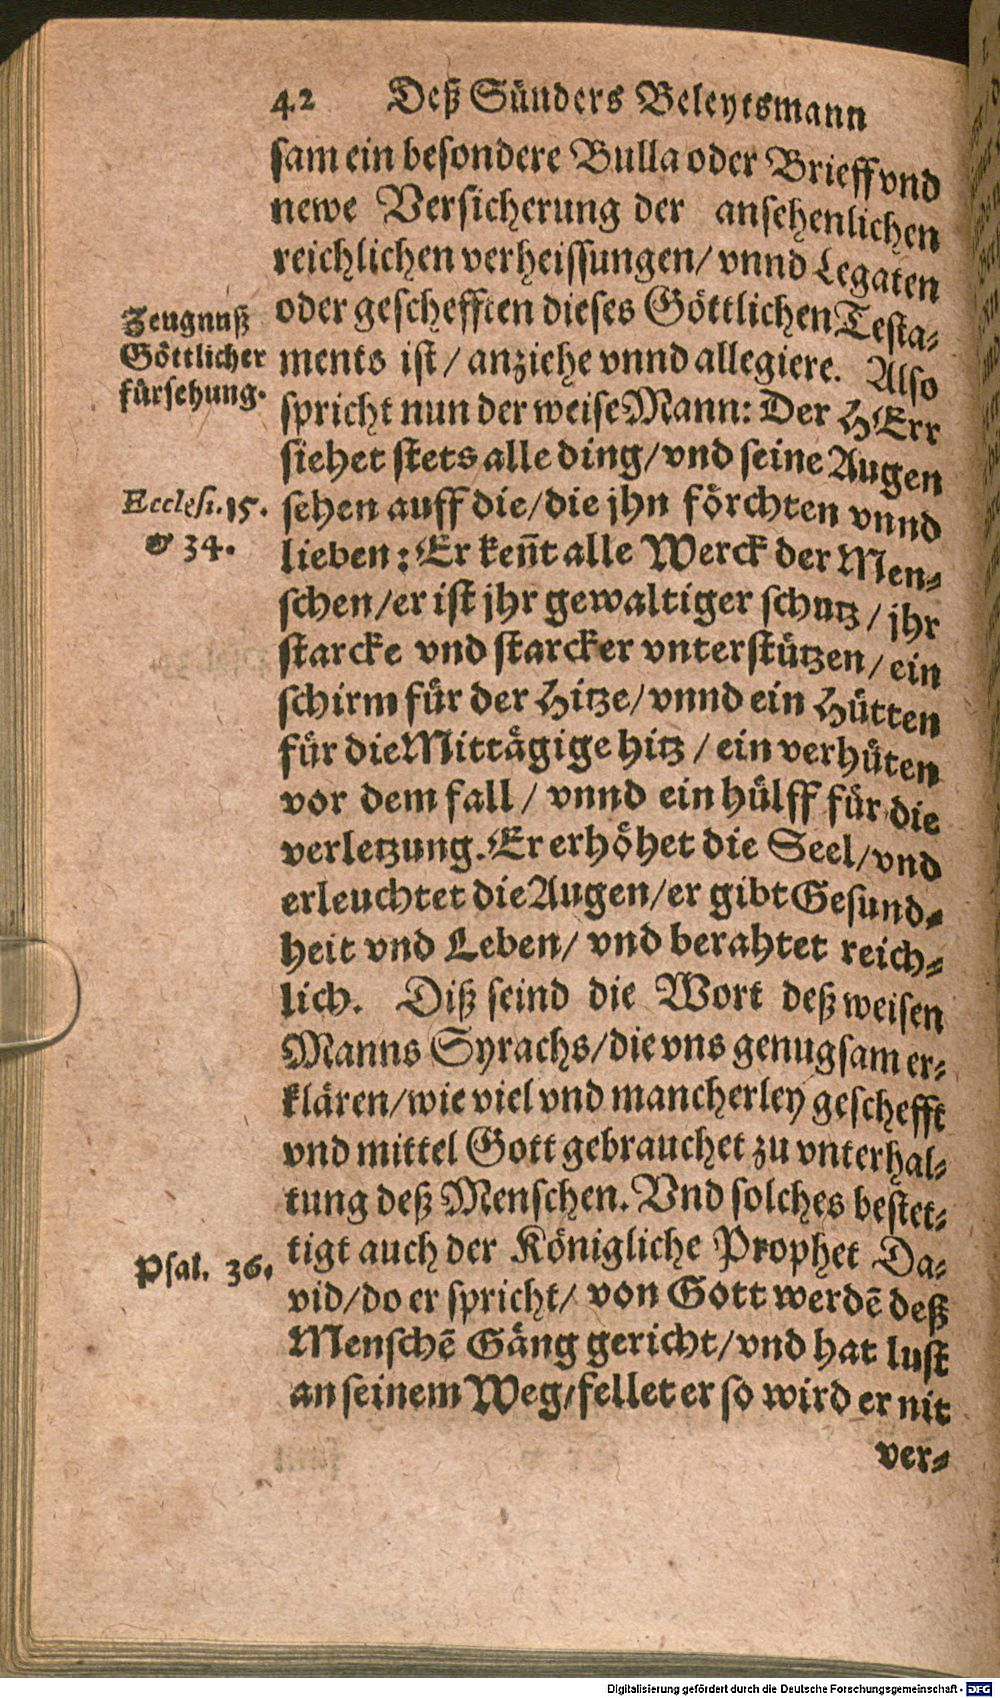 42 Deß Sünders Beleytsmann
sam ein besondere Bulla oder Brieff vnd
newe Versicherung der ansehenlichen
reichlichen verheissungen/ vnnd Legaten
oder geschefften dieses Göttlichen Testa-
ments ist/ anziehe vnnd allegiere. Also
spricht nun der weise Mann: Der HErr
siehet stets alle ding/vnd seine Augen
sehen auff die/die jhn förchten vnnd
lieben: Er keñt alle Werck der Men-
schen/er ist jhr gewaltiger schutz/jhr
starcke vnd starcker vnterstützen/ein
schirm für der Hitze/vnnd ein Hütten
für die Mittägige hitz/ein verhüten
vor dem fall/ vnnd ein hülff für die
verletzung. Er erhöhet die Seel/vnd
erleuchtet die Augen/er gibt Gesund-
heit vnd Leben/ vnd berahtet reich-
lich. Diß seind die Wort deß weisen
Manns Syrachs/die vns genugsam er-
klären/wie viel vnd mancherley geschefft
vnd mittel Gott gebrauchet zu vnterhal-
tung deß Menschen. Vnd solches bestet-
tigt auch der Königliche Prophet Da-
vid/do er spricht/ von Gott werdē deß
Menschē Gäng gericht/vnd hat lust
an seinem Weg/fellet er so wird er nit
ver-
Zeugnuß
Göttlicher
fürsehung.
Eccles. 15.
& 34.
Psal. 36.
Digitalisierung gefördert durch die Deutsche Forschungsgemeinschaft - DFG